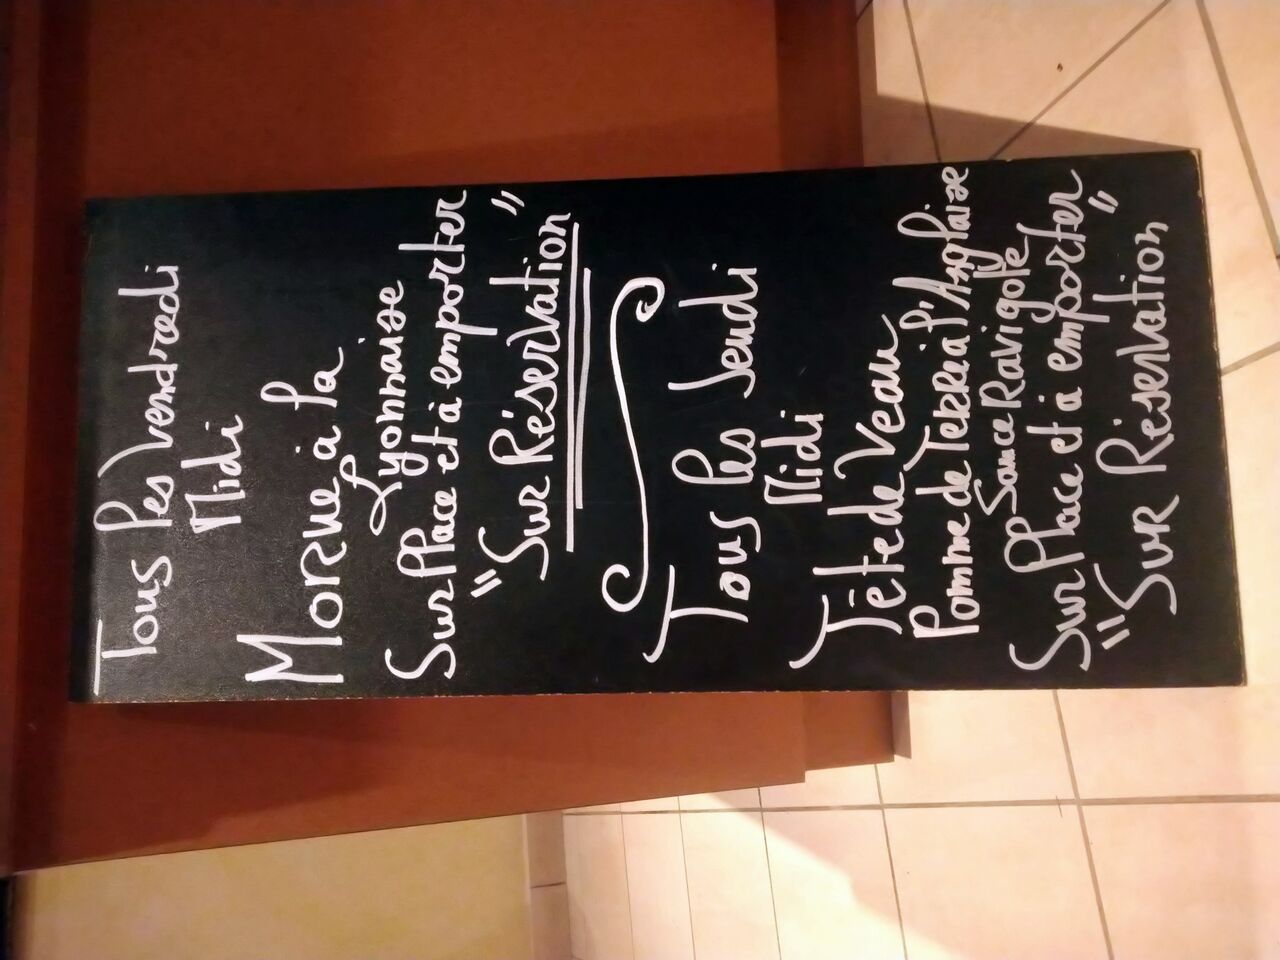 Tous les Vendredi
Midi
Morue à la
Lyonnaise
Sur Place et à emporter
"Sur Réservation"
Tous les Jeudi
Midi
Tête de Veau
Pomme de Terre à l'Anglaise
Sauce Ravigote
Sur Place et à emporter
"Sur Réservation"